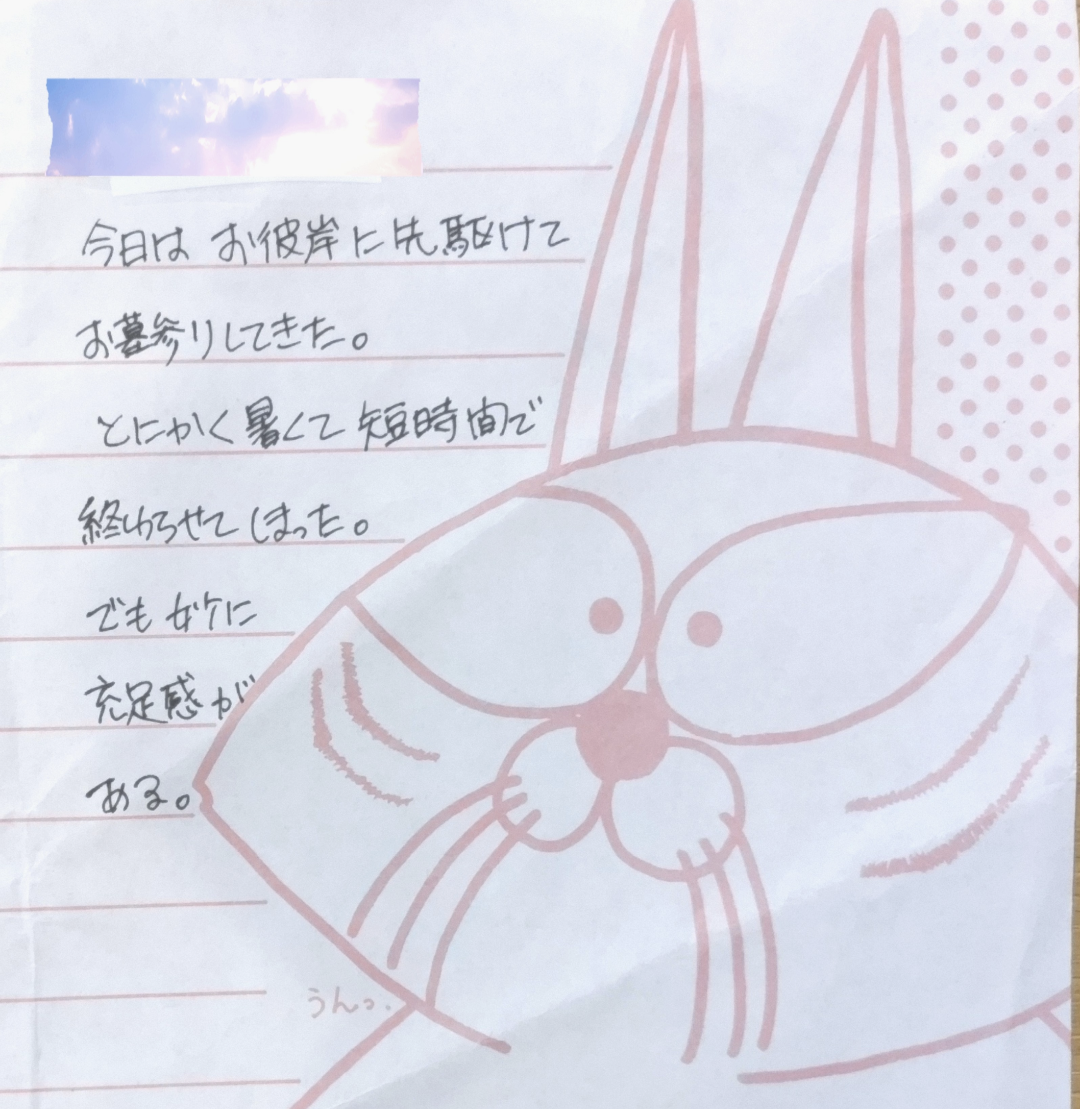 今日は お彼岸に先駆けて
お墓参りしてきた。
とにかく暑くて 短時間で
終わらせてしまった。
でも 妙に
充足感が
ある。
うんっ.